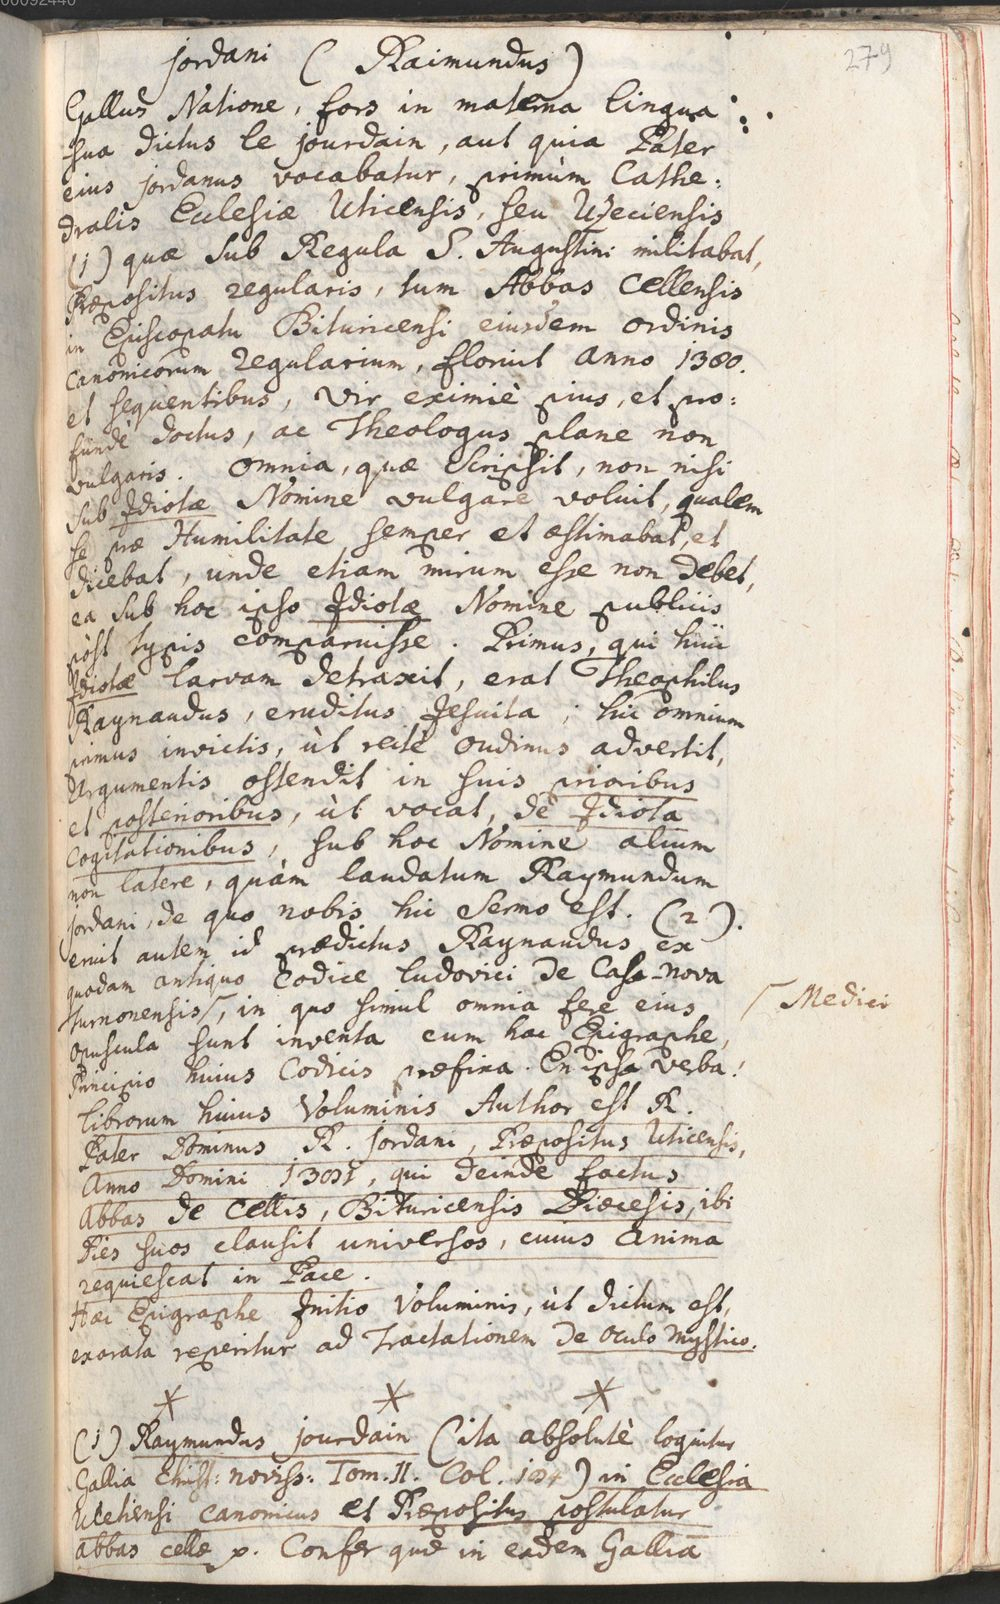 00092440
279
Jordani ( Raimundus )
Gallus Natione, fors in materna lingua
sua dictus le jourdain, aut quia Pater
eius jordanus vocabatur, primùm Cathe:
dralis Ecclesiæ Uticensis, seu Uzeciensis
(1) quæ sub Regula S. Augustini militabat,
Præpositus regularis, tum Abbas Cellensis
in Episcopatu Bituricensi eiusdem ordinis
Canonicorum regularium, floruit anno 1380.
et sequentibus, Vir eximiè pius, et pro:
fundè doctus, ac Theologus plane non
vulgaris. Omnia, quæ scripsit, non nisi
sub Idiotæ Nomine vulgare voluit, qualem
se præ Humilitate semper et æstimabat, et
dicebat, unde etiam mirum esse non debet,
ea sub hoc ipso Idiotæ Nomine publicis
pòst typis comparuisse. Primus, qui huic
Idiotæ larvam detraxit, erat Theophilus
Raynaudus, eruditus Jesuita; hic omnium
primus invictis, ùt rectè Oudinus advertit,
Argumentis ostendit in suis prioribus
et posterioribus, ùt vocat, de Idiota
Cogitationibus, sub hoc Nomine alium
non latere, quàm laudatum Raymundum
jordani, de quo nobis hic Sermo est. (2).
eruit autem id prædictus Raynaudus ex
quodam antiquo Codice ludovici de Casa-nova
Turnonensis, in quo simul omnia fere eius
Medici
opuscula sunt inventa cum hac Epigraphe,
Principio huius Codicis præfixa. En ipsa verba!
librorum huius Voluminis Author est R.
Pater Dominus R. jordani, Præpositus Uticensis,
Anno Domini 1381, qui deinde factus
Abbas de Cellis, Bituricensis Diœcesis, ibi
Dies suos clausit universos, cuius Anima
requiescat in Pace.
Hæc Epigraphe Initio Voluminis, ùt dictum est,
exarata reperitur ad Tractationem de Oculo Mystico.
(1) Raymundus jourdain (ita absolutè loquitur
Gallia Christ: noviss: Tom. II. Col.) in Ecclesia
Uceticnsi canonicus et Præpositus postulatur
abbas cellæ p. Confer quæ in eadem Gallia